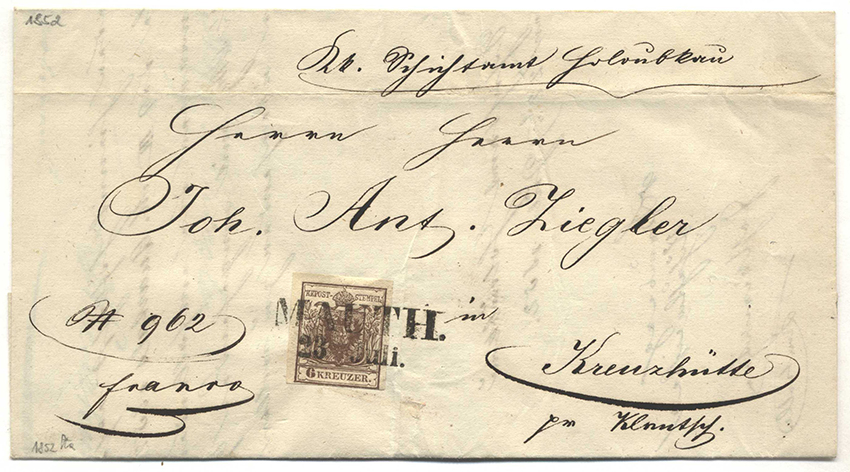 1852
Kk. Schichtamt Holoubkau
Herrn Herrn
Joh. Ant. Ziegler
KK POST-STEMPEL
MAUTH.
28 Juli.
6 KREUZER.
in
# 962
franco
Kreuzhütte
pr Klentsch.
1852